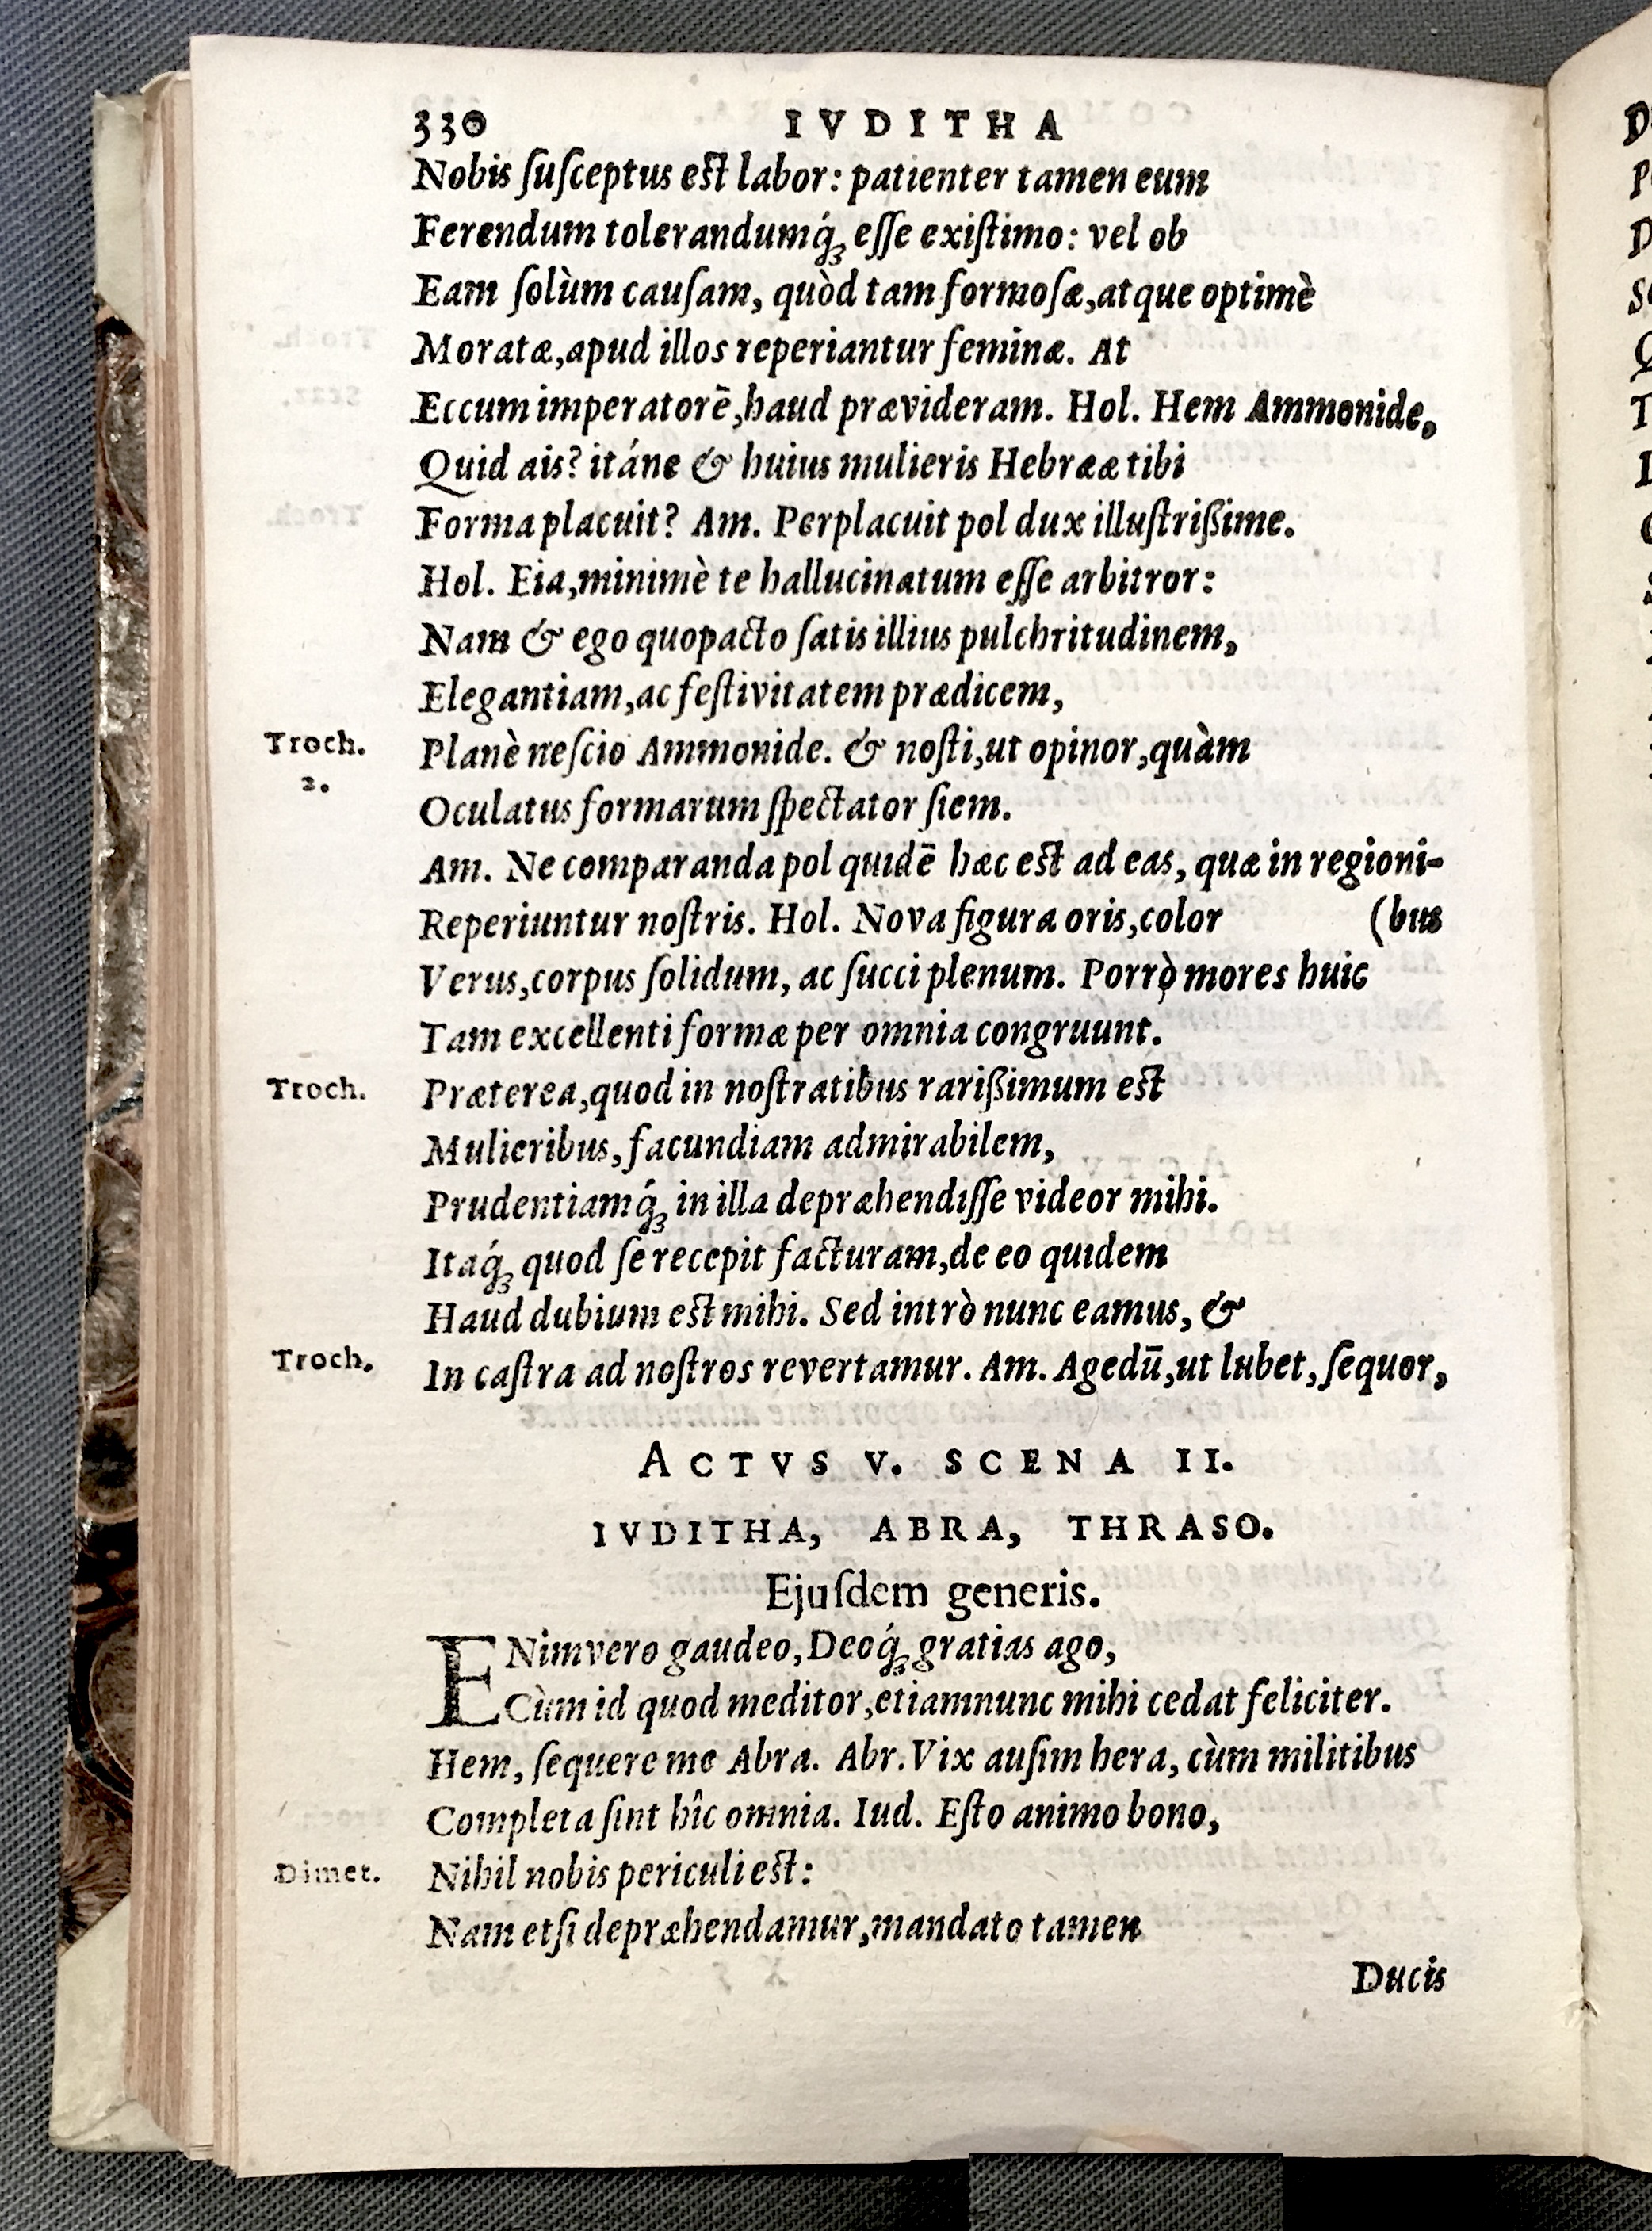 330 IVDITHA
Nobis ſuſceptus eſt labor: patienter tamen eum
Ferendum tolerandumq́ꝫ eſſe exiſtimo: vel ob
Eam ſolùm cauſam, quòd tam formoſæ, atque optimè
Moratæ, apud illos reperiantur feminæ. At
Eccum imperatorē, haud prævideram. Hol. Hem Ammonide,
Quid ais? itáne & huius mulieris Hebrææ tibi
Forma placuit? Am. Perplacuit pol dux illuſtrißime.
Hol. Eia, minimè te hallucinatum eſſe arbitror:
Nam & ego quopacto ſatis illius pulchritudinem,
Elegantiam, ac feſtivitatem prædicem,
Troch. 2. Planè neſcio Ammonide. & noſti, ut opinor, quàm
Oculatus formarum ſpectator ſiem.
Am. Ne comparanda pol quidē hæc eſt ad eas, quæ in regioni-
Reperiuntur noſtris. Hol. Nova figura oris, color (bus
Verus, corpus ſolidum, ac ſucci plenum. Porrò mores huic
Tam excellenti formæ per omnia congruunt.
Troch. Præterea, quod in noſtratibus rarißimum eſt
Mulieribus, facundiam admirabilem,
Prudentiamq́ꝫ in illa depræhendiſſe videor mihi.
Itaq́ꝫ quod ſe recepit facturam, de eo quidem
Haud dubium eſt mihi. Sed intrò nunc eamus, &
Troch. In caſtra ad noſtros revertamur. Am. Agedū, ut lubet, ſequor,
ACTVS V. SCENA II.
IVDITHA, ABRA, THRASO.
Ejuſdem generis.
ENimvero gaudeo, Deoq́ꝫ gratias ago,
Cùm id quod meditor, etiamnunc mihi cedat feliciter.
Hem, ſequere me Abra. Abr. Vix auſim hera, cùm militibus
Completa ſint hîc omnia. Iud. Eſto animo bono,
Dimet. Nihil nobis periculi eſt:
Nam etſi depræhendamur, mandato tamen
Ducis